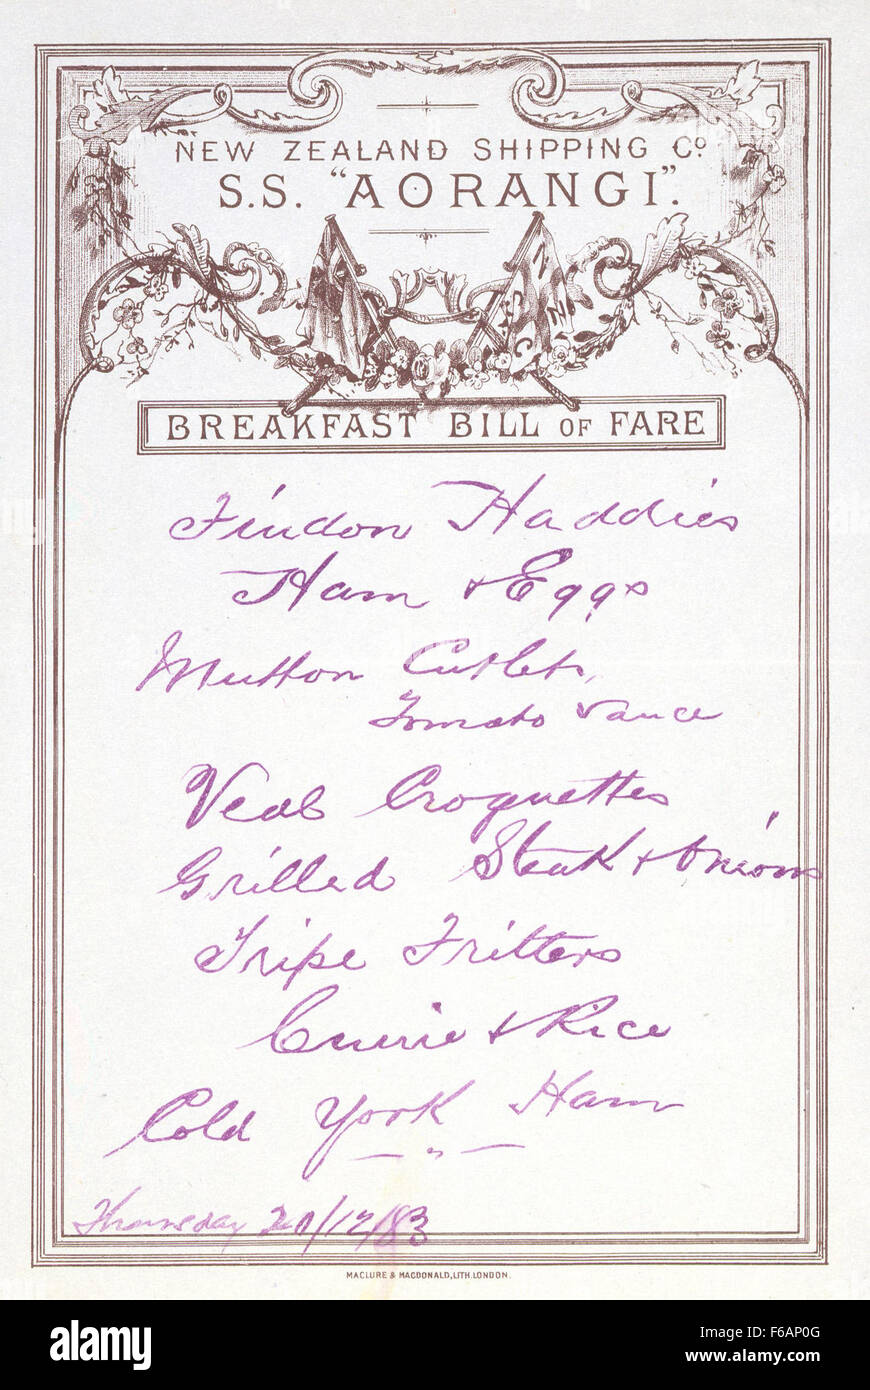 NEW ZEALAND SHIPPING Cº
S.S. "AORANGI".
BREAKFAST BILL OF FARE
Findon Haddies
Ham & Eggs
Mutton Cutlets,
Tomato Sauce
Veal Croquettes
Grilled Steak & Onions
Tripe Fritters
Currie & Rice
Cold York Ham
Thursday 20/12/83
MACLURE & MACDONALD, LITH. LONDON.
alamy
Image ID: F6AP0G
www.alamy.com